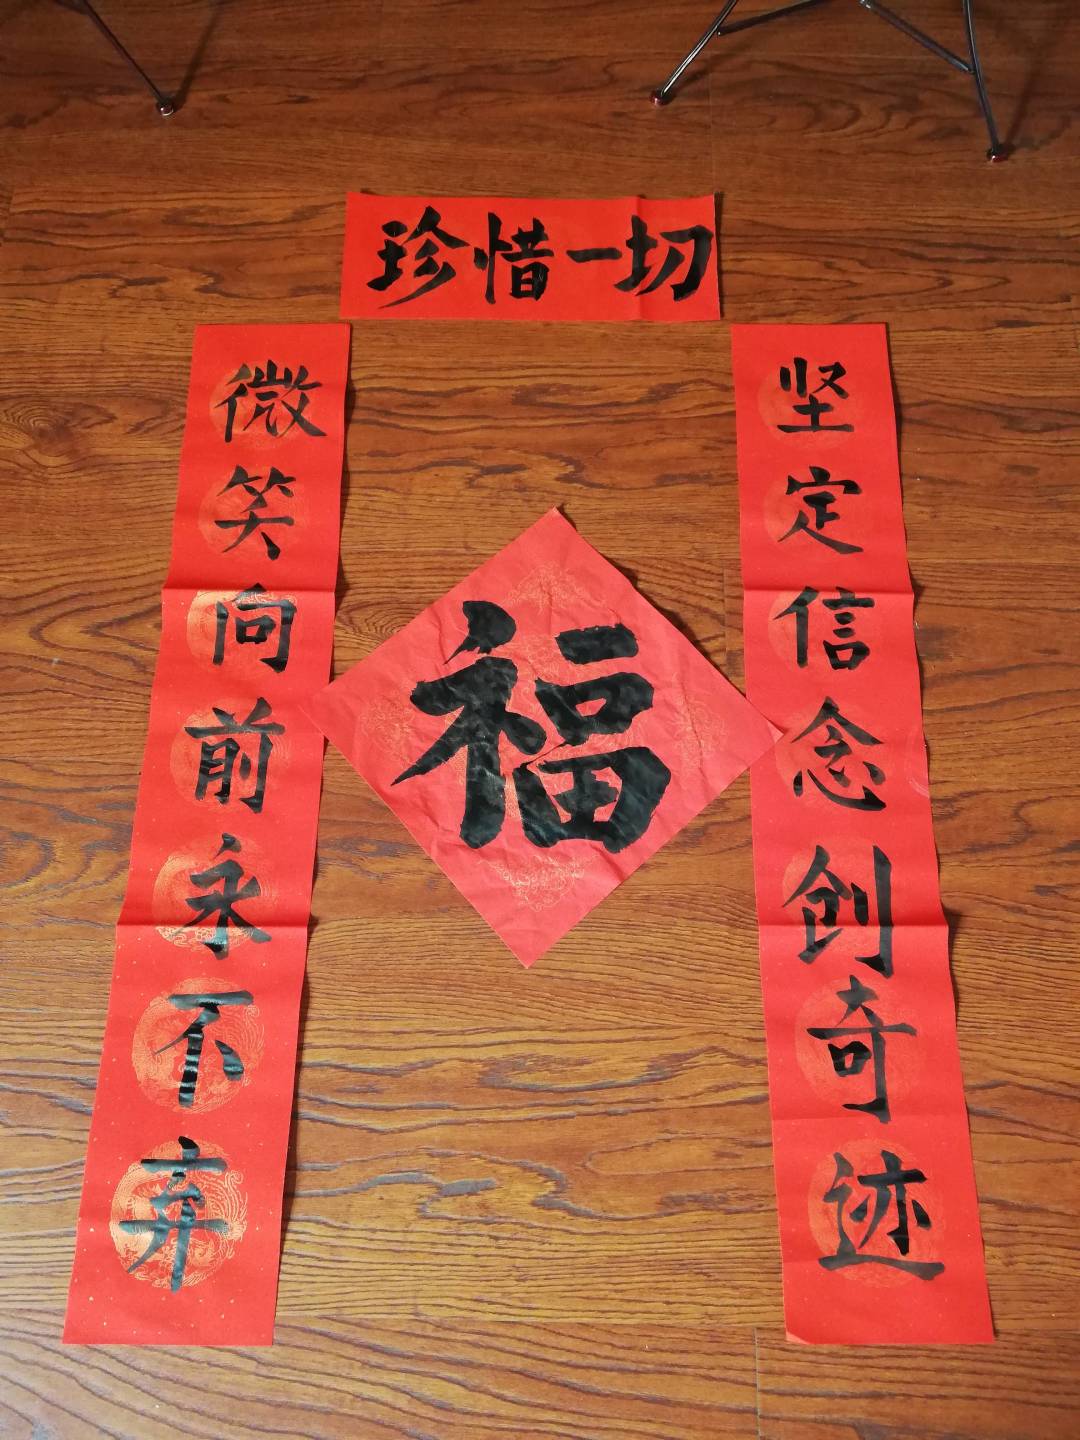 珍惜一切
坚定信念创奇迹
微笑向前永不弃
福